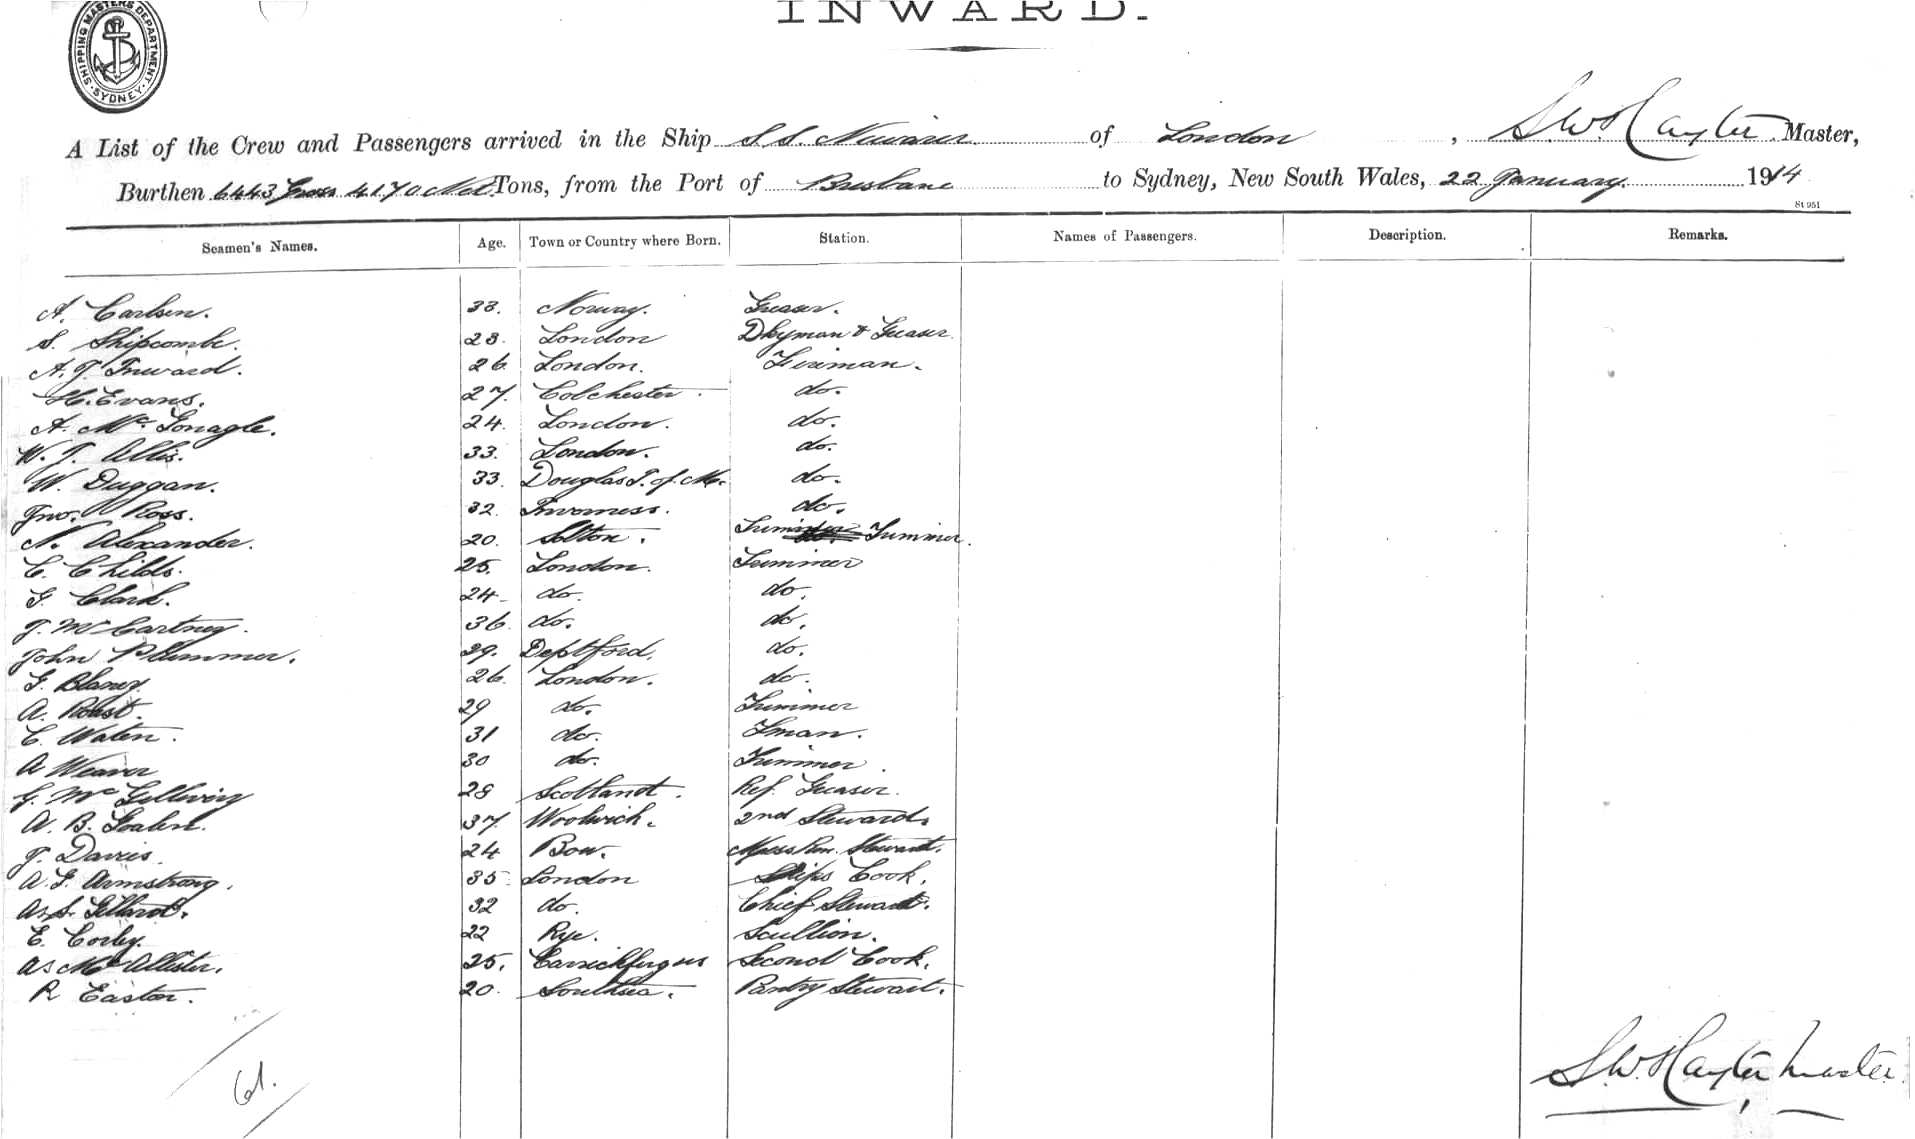 INWARD.
SHIPPING MASTERS DEPARTMENT. SYDNEY.
A List of the Crew and Passengers arrived in the Ship S.S. of London, S.W.S Hayter Master,
Burthen 6443 Gross 4170 Net Tons, from the Port of Brisbane to Sydney, New South Wales, 22 January 1914
St 951
Seamen's Names. Age. Town or Country where Born. Station. Names of Passengers. Description. Remarks.
A. Carlsen. 33. Norway. Greaser.
S. Shipcombe. 23. London Dkyman & Greaser.
A.J. Inward. 26. London. Fireman.
H. Evans. 27. Colchester. do.
A. McGonagle. 24. London. do.
W. J. Allis. 33. London. do.
W. Duggan. 33. Douglas I. of M. do.
Jno. Ross. 32. Inverness. do.
N. Alexander. 20. Trimmer.
C. Childs. 25. London. Trimmer
G. Clark. 24 do. do.
J. McCartney. 36. do. do.
John Plummer. 29. Deptford. do.
G. Blaney. 26. London. do.
A. 29 do. Trimmer
C. 31 do. Fman.
A Weaver 30 do. Trimmer.
G. Mc 28 Scotland. Ref. Greaser.
A. B. 37. Woolwich. 2nd Steward.
J. Davis. 24 Bow. Mess Rm. Steward.
A. F. Armstrong. 35 London Ships Cook.
32 do. Chief Steward.
E. Corby. 22 Rye. Scullion.
As McAllister. 25. Carrickfergus Second Cook.
R Easton. 20. Southsea. Pantry Steward.
61.
S.W.S Hayter, Master.